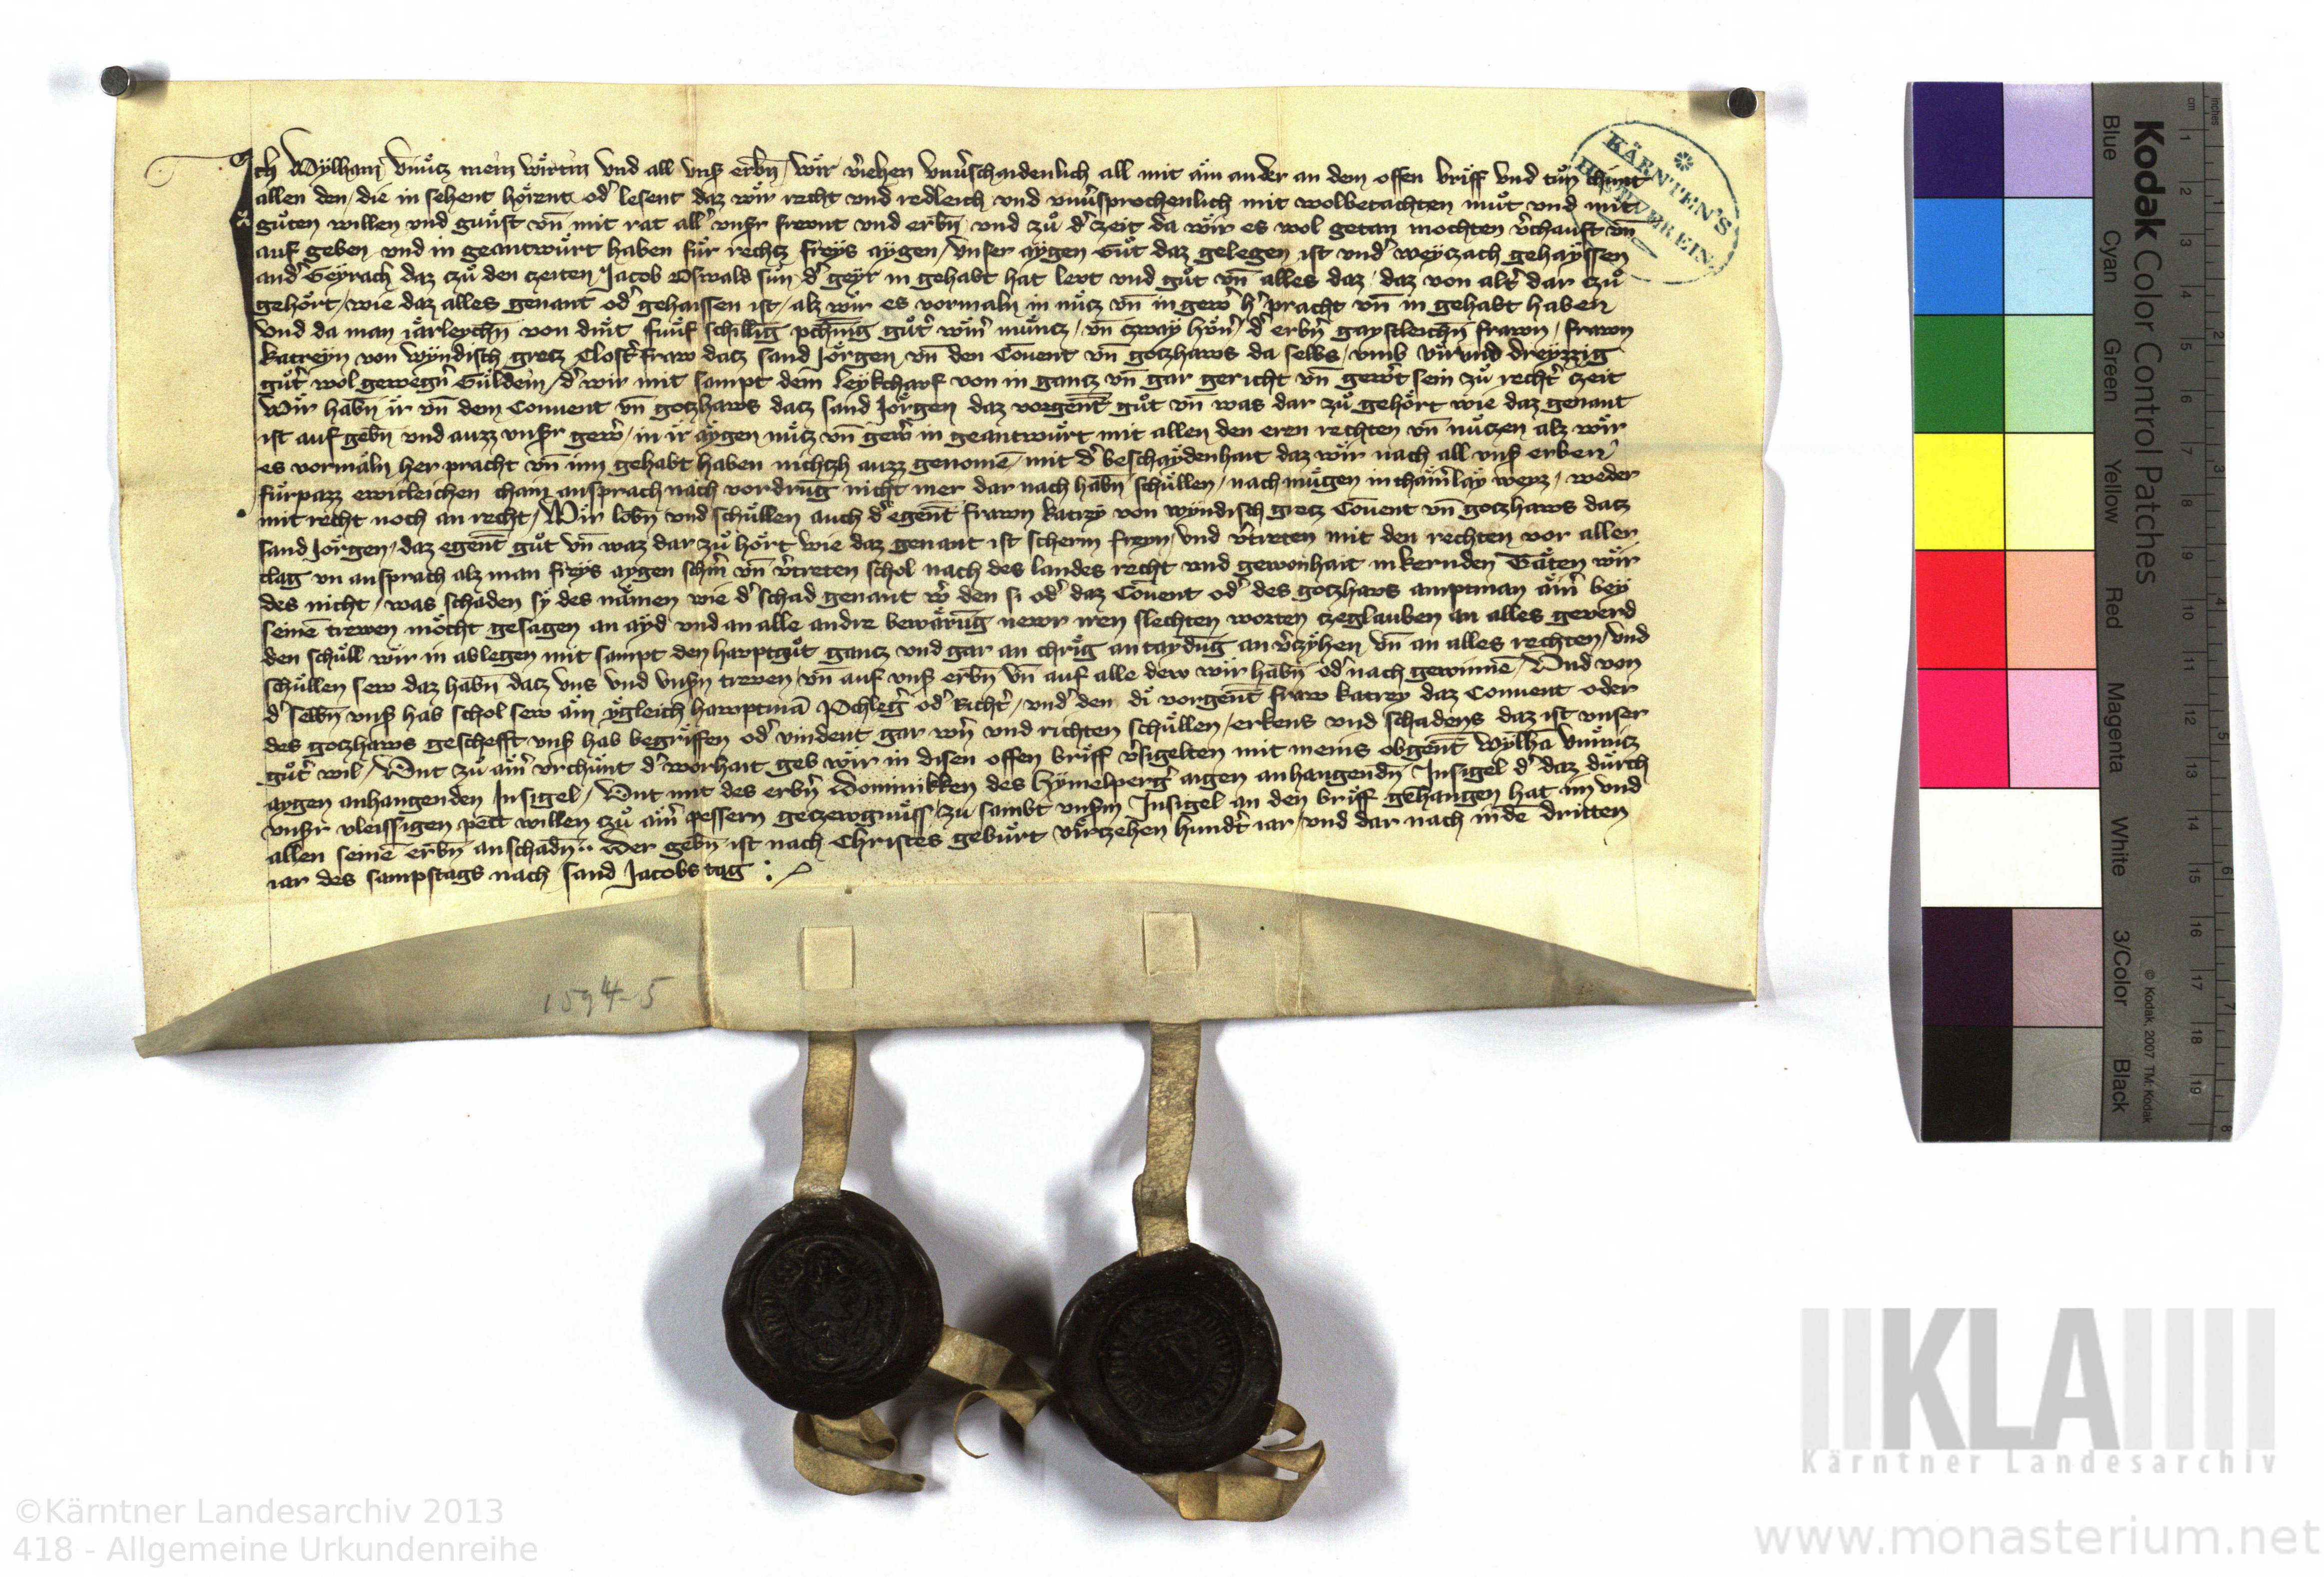 Ich Wylham vnuͤcz mein wirtin vnd all vnser erbn̄ wir veriehen vnuerschaidenlich all mit ain ander an dem offen briff vnd tuͦn chunt
allen den die in sehent hoͤrent od' lesent daz wir recht vnd redleich vnd vnu'sprochenlich mit wolbetachten muͦt vnd mit
guͦten willen vnd gunst vn̄ mit rat all' vnsr frewnt vnd erbn̄ vnd zuͦ d' zeit da wir es wol getan mochten v'chauft vn̄
auf geben vnd in geantwuͤrt haben fuͤr rechtz freys aygen vnser aygen Guͦt daz gelegen ist vnd' weyczach gehayssen
and' Geyrach daz czuͦ den czeiten Jacob Oswald sun d' geyr in gehabt hat lewt vnd guͦt vn̄ alles daz daz von alt' dar czuͦ
gehoͤrt wie daz alles genant od' gehaissen ist alz wir es vormaln in nuͤcz vn̄ in gew' h' pracht vn̄ in gehabt haben
vnd da man iaͤrleychn̄ von dint fuͤnf schilling pfening guͦt' win' muͤncz vn̄ czway hoͤn' d' erbn̄ gaystleichn̄ frawn frawn
katreyn von wyndisch gretz Clost'fraw datz sand Joͤrgen vn̄ den Couent vn̄ goczhaws da selbs vmb vir vnd dreyzzig
guͦt' wol gewegn' Guldein d' wir mit sampt dem leykchauf von in gancz vn̄ gar gericht vn̄ gew't sein zuͦ recht' czeit
Wir habn̄ ir vn̄ dem Conuent vn̄ goczhaws datz sand Joͤrgen daz vorgent guͦt vn̄ was dar zuͦ gehoͤrt wie daz genant
ist auf gebn̄ vnd auzz vnsr gew' in ir aygen nuͤcz vn̄ gew' in geantwuͤrt mit allen den eren rechten vn̄ nuͤczen alz wir
es vormaln her pracht vn̄ inn gehabt haben nichtzh auzz genomē mit d' beschaydenhait daz wir nach all vnser erben
fuͤrpazz ewicleichen chain ansprach nach vordrung nicht mer dar nach habn̄ schuͤllen nach muͤgen in chain'lay weyz weder
mit recht noch an recht Wir lobn̄ vnd schuͤllen auch d' egent frawn katrey von wyndisch gretz Couent vn̄ goczhaws datz
sand Joͤrgen daz egent guͦt vn̄ waz dar zuͦ hoͤrt wie daz genant ist scherm freyn vnd v'treten mit den rechten vor aller
clag vn ansprach alz man freys aygen schm' vn̄ v'treten schol nach des landes recht vnd gewonhait in kernden Taͤten wir
des nicht was schaden sy des naͤmen wie d' schad genant w' den si od' daz Couent od' des goczhaws amptman ain' bey
seinē trewen moͤcht gesagen an ayd vnd an alle andre bewaͤrung newr iren slechten worten czeglauben an alles geverd
den schuͤll wir in ablegen mit sampt den hawptguͦt gancz vnd gar an chrig an tayding an v'czyhen vn̄ an alles rechten vnd
schuͤllen sew daz habn̄ datz vns vnd vnsn trewen vn̄ auf vnser erbn̄ vn̄ auf alle dew wir habn̄ od' nach gewinnē Vnd von
d' selbn̄ vnser hab schol sew ain ygleich hawptmā Pchleg' od' Richt' vnd' den di vorgent fraw katrey daz Conuent oder
des goczhaws geschefft vnser hab begriffen od' vindent gar wern vnd richten schuͤllen erkens vnd schadens daz ist vnser
guͦt' wil Vnt zuͦ ain' vrchunt d' worhait geb wir in disen offen briff v'sigelten mit meins obgent Wylhā vnnuͤcz
aygen anhangenden Insigel Vnt mit des erbn' Dominikken des Hymelperg' aigen anhangendn̄ Insigel d' daz durch
vnsr vleissigen pett willen czuͦ ain' pessern geczewgnuͤss zu sambt vnserm Insigel an den briff gehangen hat im vnd
allen seinē erbn̄ an schadn̄ Der gebn̄ ist nach Christes geburt virczehen hundt' iar vnd dar nach in dē dritten
iar des sampstags nach sand Jacobs tag
KÄRNTEN'S
VEREIN
1594-5
Kodak Color Control Patches
Blue Cyan Green Yellow Red Magenta White 3/Color Black
© Kodak, 2007 TM: Kodak
cm 1 2 3 4 5 6 7 8 9 10 11 12 13 14 15 16 17 18 19
inches 1 2 3 4 5 6 7 8
KLA
Kärntner Landesarchiv
©Kärntner Landesarchiv 2013
418 - Allgemeine Urkundenreihe
www.monasterium.net